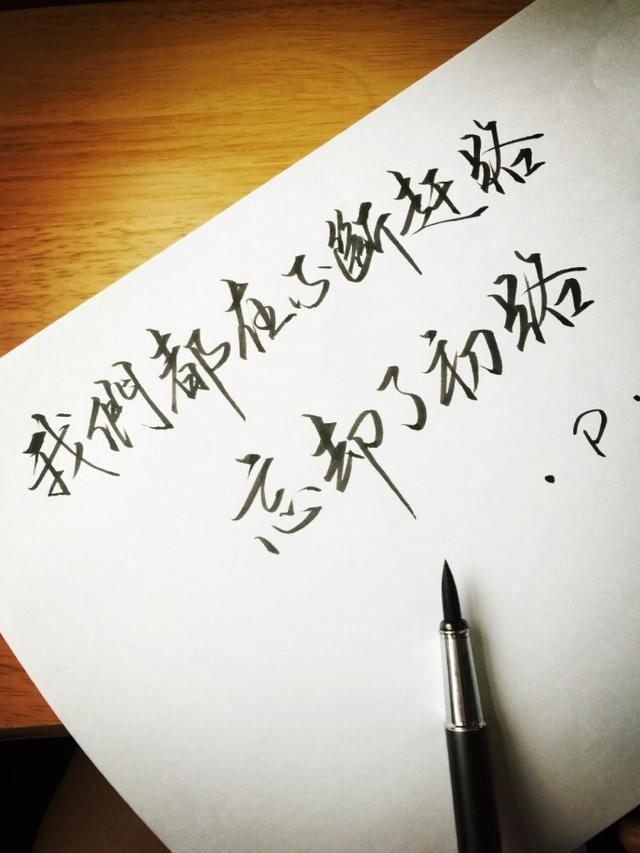 我們都在不斷趕路
忘却了初路
.P.